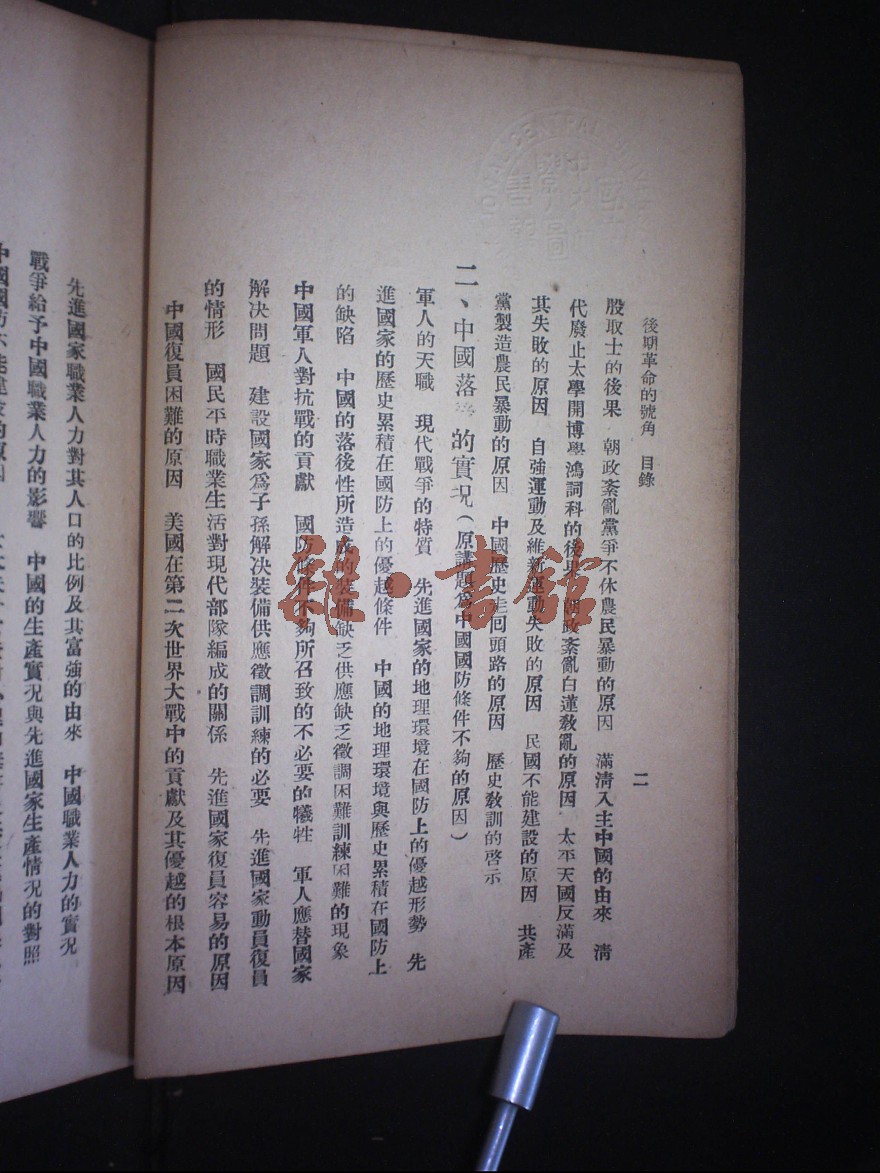 後期革命的號角　目錄
二
股取士的後果　朝政紊亂黨爭不休農民暴動的原因　滿清入主中國的由來　清
代廢止太學開博學鴻詞科的後果　朝政紊亂白蓮敎亂的原因　太平天國反滿及
其失敗的原因　自強運動及維新運動失敗的原因　民國不能建設的原因　共產
黨製造農民暴動的原因　中國歷史走回頭路的原因　歷史敎訓的啓示
二、中國落後的實况（原講題爲中國國防條件不夠的原因）
軍人的天職　現代戰爭的特質　先進國家的地理環境在國防上的優越形勢　先
進國家的歷史累積在國防上的優越條件　中國的地理環境與歷史累積在國防上
的缺陷　中國的落後性所造成的裝備缺乏供應缺乏徵調困難訓練困難的現象
中國軍人對抗戰的貢獻　國防條件不夠所召致的不必要的犧牲　軍人應替國家
解決問題　建設國家爲子孫解決裝備供應徵調訓練的必要　先進國家動員復員
的情形　國民平時職業生活對現代部隊編成的關係　先進國家復員容易的原因
中國復員困難的原因　美國在第二次世界大戰中的貢獻及其優越的根本原因
先進國家職業人力對其人口的比例及其富強的由來　中國職業人力的實况
戰爭給予中國職業人力的影響　中國的生產實况與先進國家生產情况的對照
雜·書館